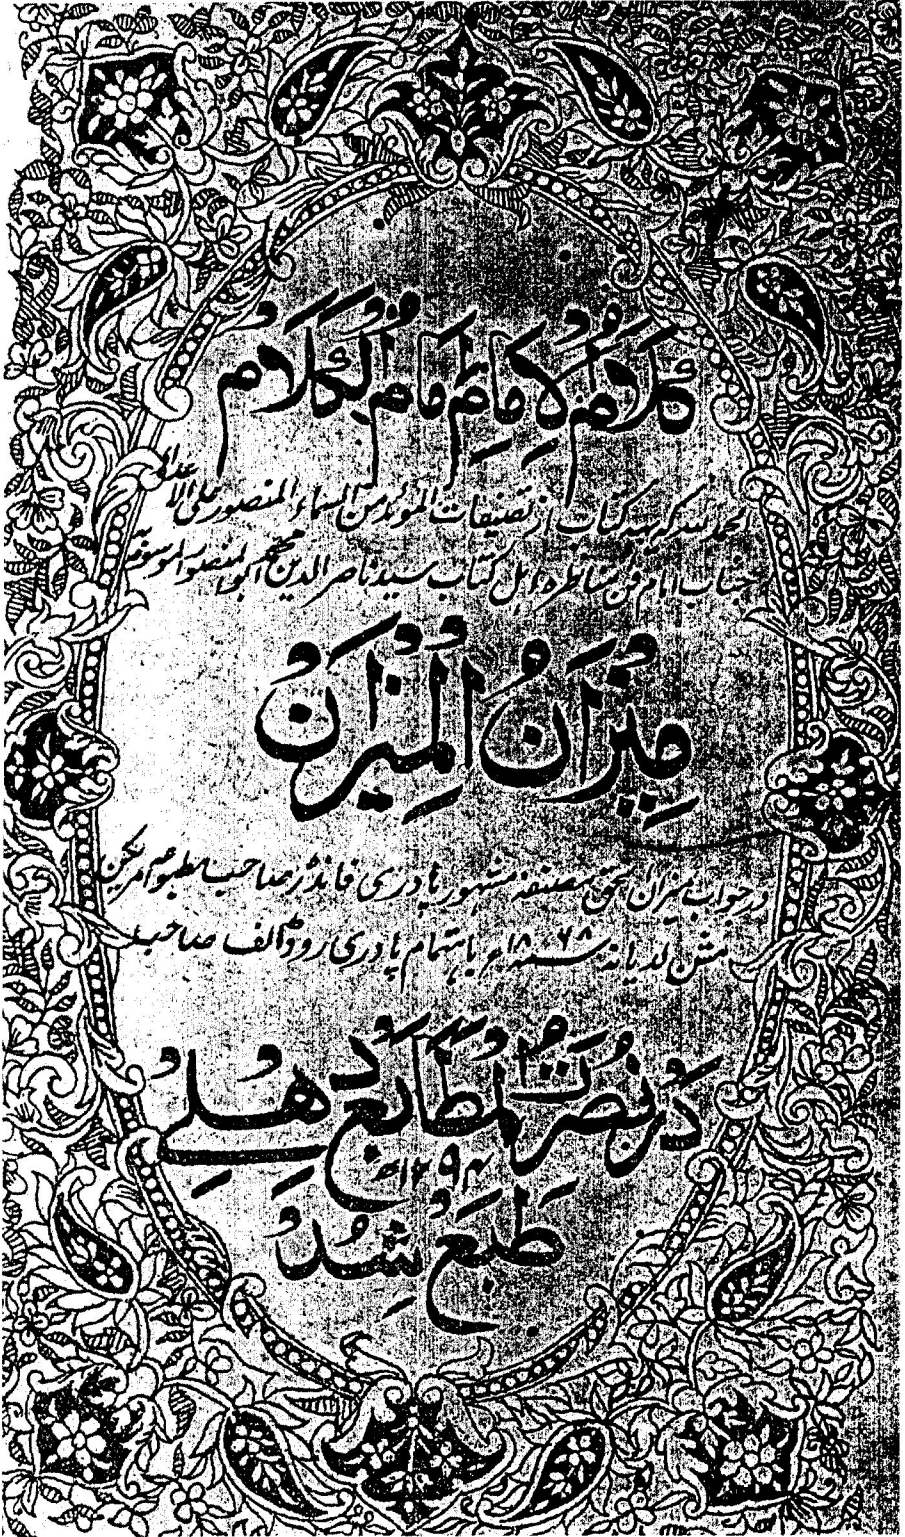 كلام الامام امام الكلام
الحمد لله كه يه كتاب از تصنيفات المؤيد من السماء المنصور على الاعداء
جناب امام فن مناظره اهل كتاب سيد ناصر الدين محمد ابو المنصور الموسوم به
ميزان الميزان
در جواب ميزان الحق مصنفه مشهور پادری فانڈر صاحب مطبوعه امريكن
مشن لديانه سنه ۱۸۶۸ء باهتمام پادری روڈالف صاحب
در نصرت المطابع دهلی
۱۲۹۴ھ
طبع شد